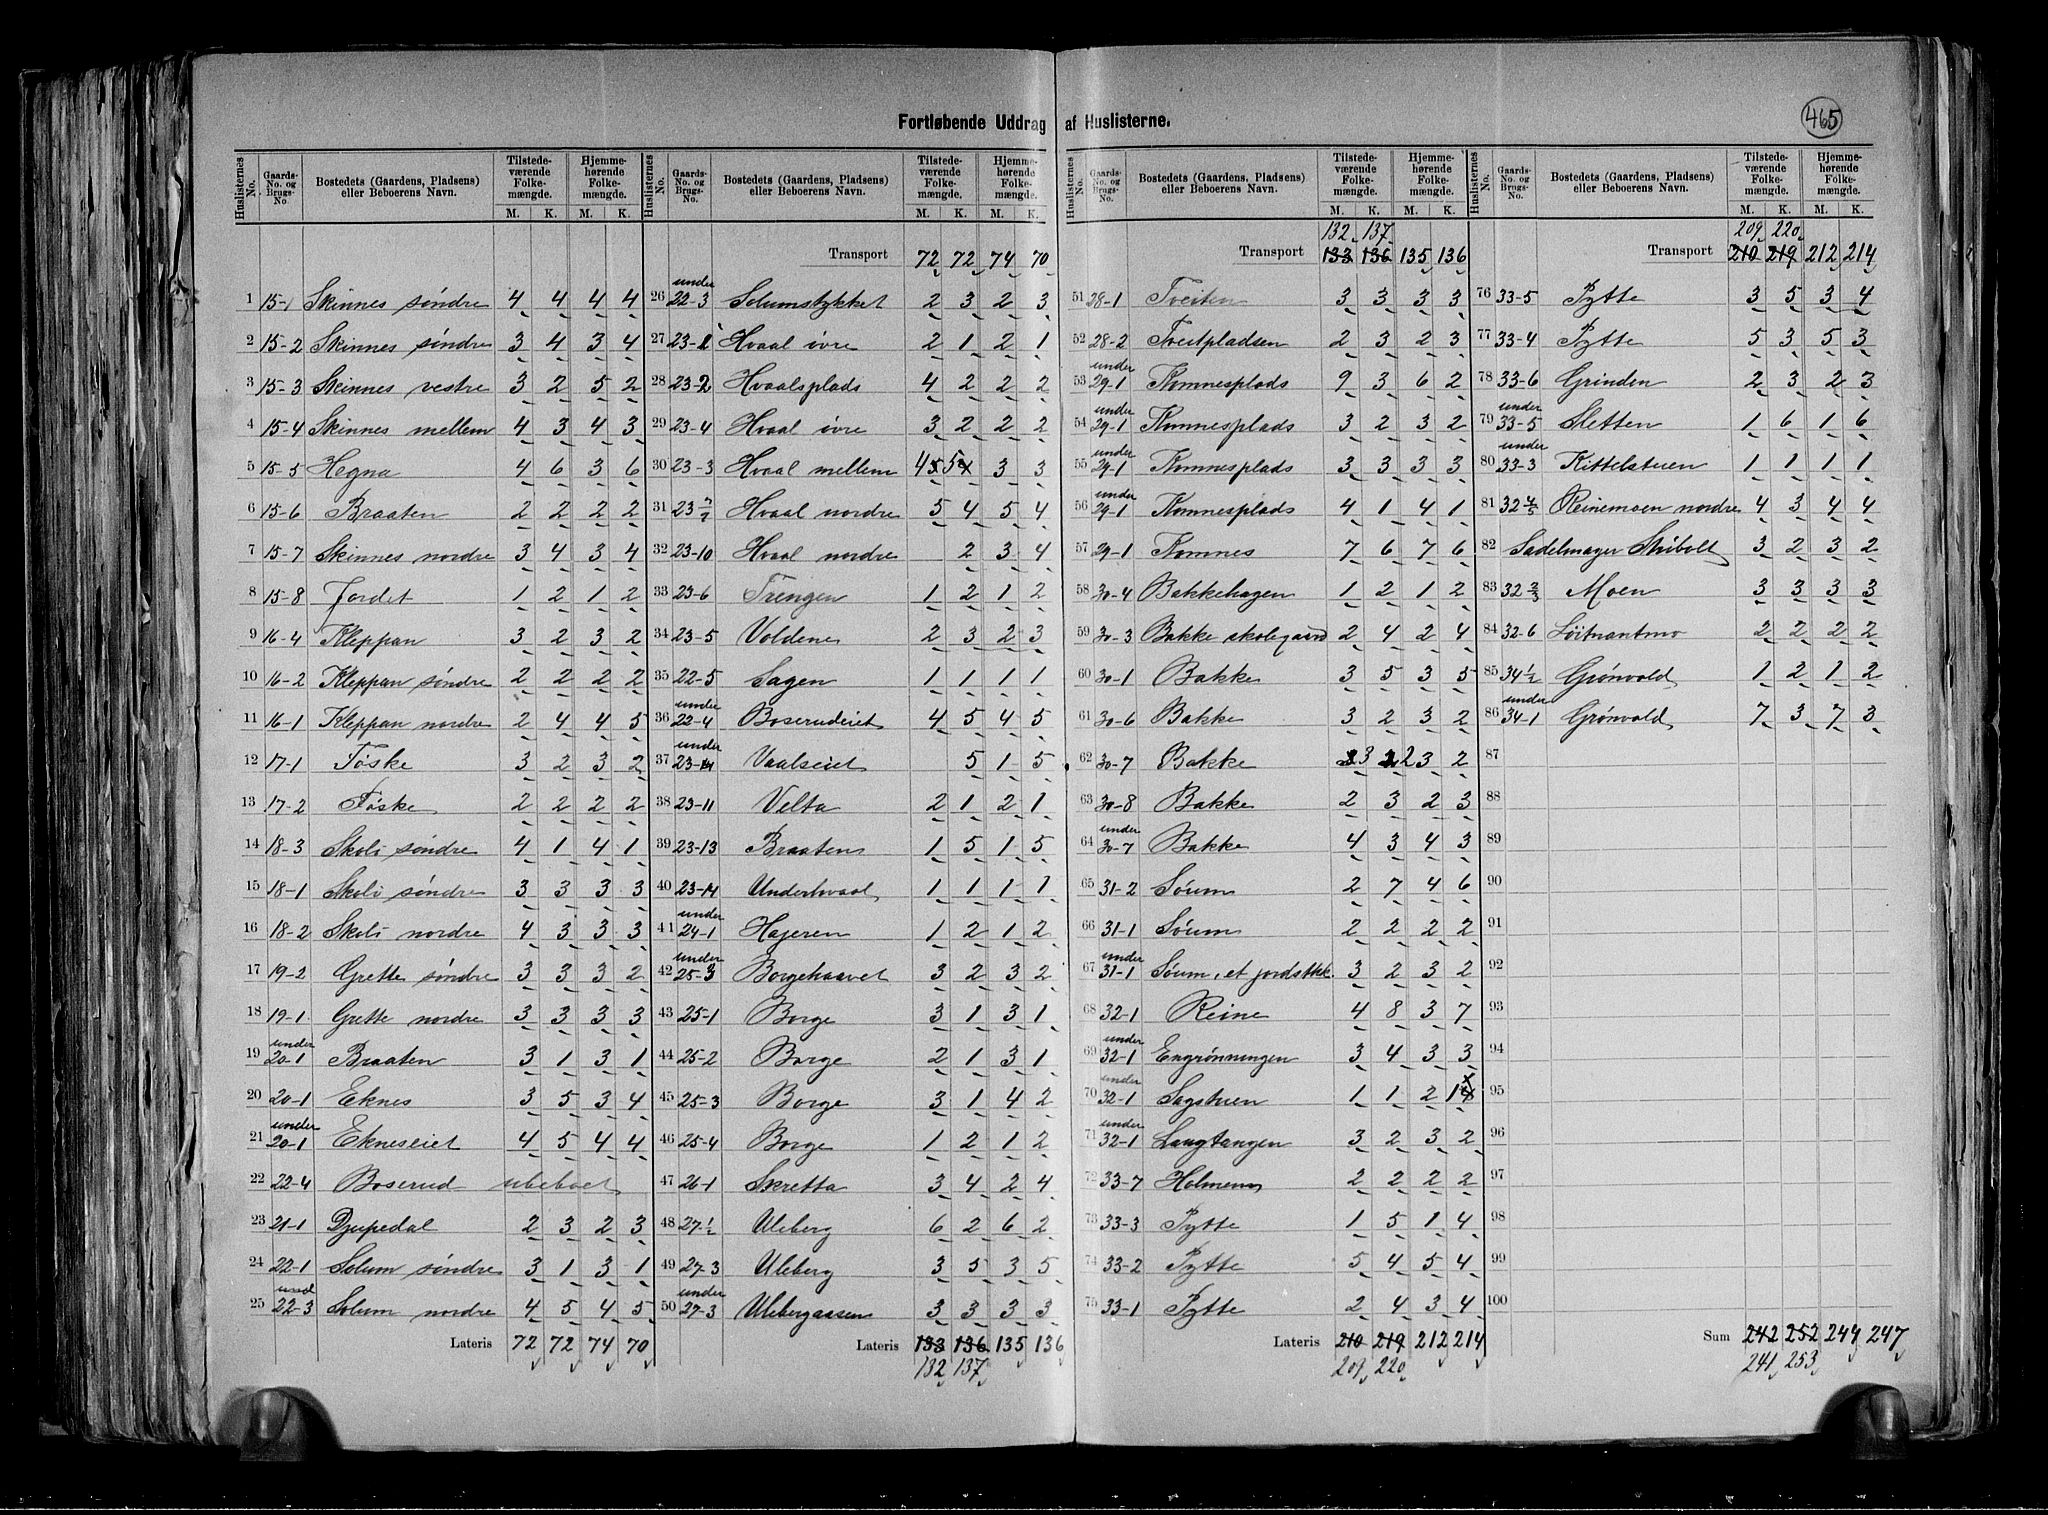 465
Fortløbende Uddrag af Huslisterne.
Huslisternes No. | Gaards-No. og Brugs-No. | Bostedets (Gaardens, Pladsens) eller Beboerens Navn. | Tilstedeværende Folkemængde. M. K. | Hjemmehørende Folkemængde. M. K.
1 15-1 Skinnes søndre 4 4 4 4
2 15-2 Skinnes søndre 3 4 3 4
3 15-3 Skinnes vestre 3 2 5 2
4 15-4 Skinnes mellem 4 3 4 3
5 15-5 Hegna 4 6 3 6
6 15-6 Braaten 2 2 2 2
7 15-7 Skinnes nordre 3 4 3 4
8 15-8 Jordet 1 2 1 2
9 16-4 Kleppan 3 2 3 2
10 16-2 Kleppan søndre 2 2 2 2
11 16-1 Kleppan nordre 2 4 4 5
12 17-1 Føske 3 2 3 2
13 17-2 Føske 2 2 2 2
14 18-3 Skoli søndre 4 1 4 1
15 18-1 Skoli søndre 3 3 3 3
16 18-2 Skoli nordre 4 3 3 3
17 19-2 Grette søndre 3 3 3 2
18 19-1 Grette nordre 3 3 3 3
19 under 20-1 Braaten 3 1 3 1
20 20-1 Eknes 3 5 3 4
21 under 20-1 Ekneseiet 4 5 4 4
22 22-4 Boserud ubeboet
23 21-1 Djupedal 2 3 2 3
24 22-1 Solum søndre 3 1 3 1
25 und 22-3 Solum nordre 4 5 4 5
Lateris 72 72 74 70
Huslisternes No. | Gaards-No. og Brugs-No. | Bostedets (Gaardens, Pladsens) eller Beboerens Navn. | Tilstedeværende Folkemængde. M. K. | Hjemmehørende Folkemængde. M. K.
Transport 72 72 74 70
26 under 22-3 Solumstykket 2 3 2 3
27 23-1 Hvaal øvre 2 1 2 1
28 23-2 Hvaalsplads 4 2 2 2
29 23-4 Hvaal øvre 3 2 2 2
30 23-3 Hvaal mellem 4 5 3 3
31 Hvaal nordre 5 4 5 4
32 23-10 Hvaal nordre 2 3 4
33 23-6 Trengen 1 2 1 2
34 23-5 Voldene 2 3 2 3
35 22-5 Sagen 1 1 1 1
36 under 22-4 Boserudeiet 4 5 4 5
37 under Vaalseiet 5 1 5
38 23-11 Velta 2 1 2 1
39 23-13 Braaten 1 5 1 5
40 23-14 Underhvaal 1 1 1 1
41 under 24-1 Hageren 1 2 1 2
42 under 25-3 Borgehaavet 3 2 3 2
43 25-1 Borge 3 1 3 1
44 25-2 Borge 2 1 3 1
45 25-3 Borge 3 1 4 2
46 25-4 Borge 1 2 1 2
47 26-1 Skretta 3 4 2 4
48 27 1/2 Uleberg 6 2 6 2
49 27-3 Uleberg 3 5 3 5
50 under 27-3 Ulebergaasen 3 3 3 3
Lateris 133 136 135 136
132 137
Huslisternes No. | Gaards-No. og Brugs-No. | Bostedets (Gaardens, Pladsens) eller Beboerens Navn. | Tilstedeværende Folkemængde. M. K. | Hjemmehørende Folkemængde. M. K.
132 137
Transport 133 136 135 136
51 28-1 Tveiten 3 3 3 3
52 28-2 Tveitpladsen 2 3 2 3
53 under 29-1 Tomnesplads 9 3 6 2
54 under 29-1 Tomnesplads 3 2 3 2
55 under 29-1 Tomnesplads 3 3 3 3
56 under 29-1 Tomnesplads 4 1 4 1
57 29-1 Tomnes 7 6 7 6
58 30-4 Bakkehagen 1 2 1 2
59 30-3 Bakke skolegaard 2 4 2 4
60 30-1 Bakke 3 5 3 5
61 30-6 Bakke 3 2 3 2
62 30-7 Bakke 3 2 3 2
63 30-8 Bakke 2 3 2 3
64 under 30-7 Bakke 4 3 4 3
65 31-2 Søum 2 7 4 6
66 31-1 Søum 2 2 2 2
67 under 31-1 Søum, et jordstkk. 3 2 3 2
68 32-1 Reine 4 8 3 7
69 under 32-1 Engrønningen 3 4 3 3
70 under 32-1 Sagstuen 1 1 2 1
71 under 32-1 Langtangen 3 2 3 2
72 33-7 Holmenn 2 2 2 2
73 33-3 Pytte 1 5 1 4
74 33-2 Pytte 5 4 5 4
75 33-1 Pytte 2 4 3 4
Lateris 210 219 212 214
209 220
Huslisternes No. | Gaards-No. og Brugs-No. | Bostedets (Gaardens, Pladsens) eller Beboerens Navn. | Tilstedeværende Folkemængde. M. K. | Hjemmehørende Folkemængde. M. K.
209 220
Transport 210 219 212 214
76 33-5 Pytte 3 5 3 4
77 33-4 Pytte 5 3 5 3
78 33-6 Grinden 2 3 2 3
79 under 33-5 Sletten 1 6 1 6
80 under 33-3 Kittelstuen 1 1 1 1
81 32 4/5 Reinemoen nordre 4 3 4 4
82 Sadelmager Skibolt 3 2 3 2
83 32 2/3 Moen 3 3 3 3
84 32-6 Løitnantmo 2 2 2 2
85 34 1/2 Grønvold 1 2 1 2
86 under 34-1 Grønvold 7 3 7 3
87
88
89
90
91
92
93
94
95
96
97
98
99
100
Sum 242 252 244 247
241 253